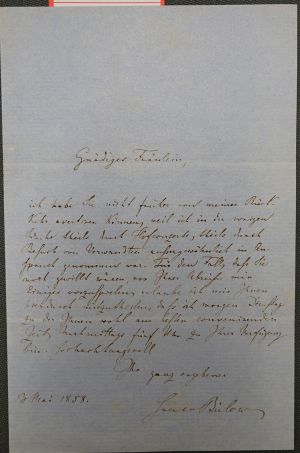 Gnädiges Fräulein,
ich habe Sie nicht früher von meiner Rück-
kehr avertiren können, weil ich in der vorigen
Woche theils durch Hofconcerte, theils durch
Besuch von Verwandten unaufhörlich in An-
spruch genommen war. Für den Fall, daß Sie
noch gewillt wären, vor Ihrer Abreise mir
Einiges vorzuspielen, erlaube ich mir Ihnen
mitzutheilen, daß ich morgen Dienstag
zu der Ihnen wohl am besten convenirenden
Zeit, Nachmittags fünf Uhr zu Ihrer Verfügung
bin. Hochachtungsvoll
Ihr
ganz ergebener
3 Mai 1858.
Hans v Bülow